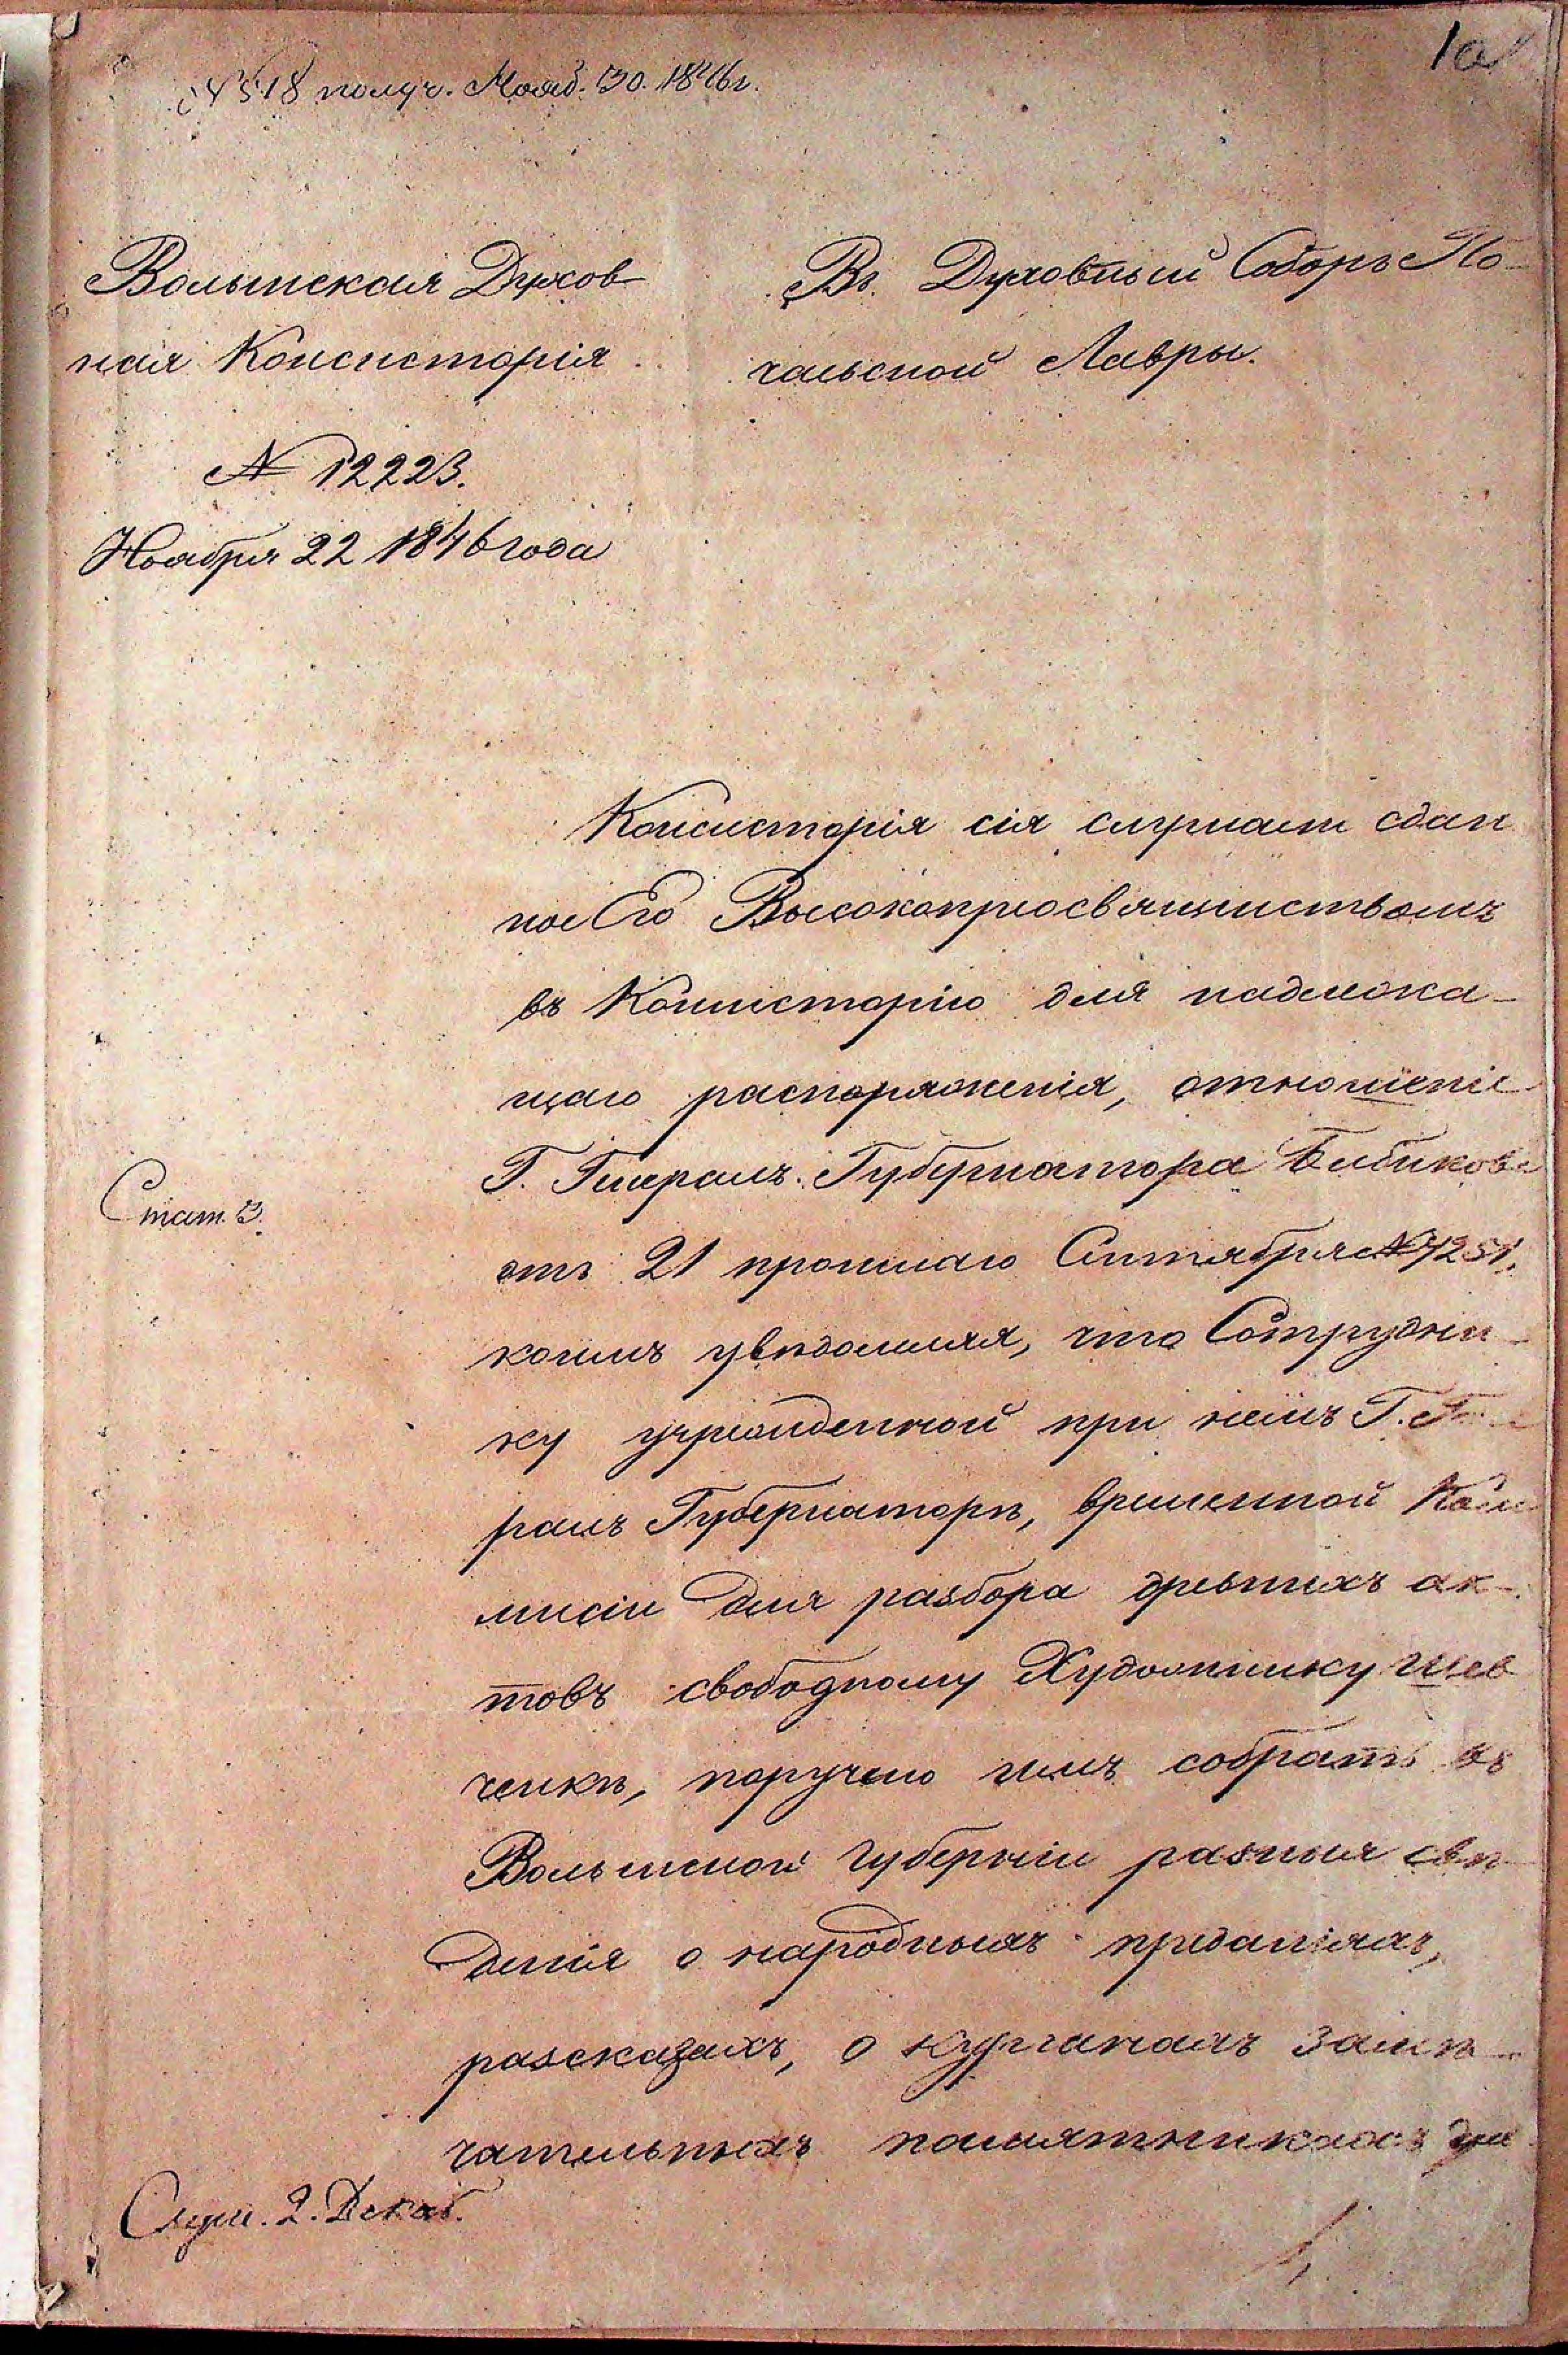 1а
№ 518 получ. Нояб. 30. 1846 г.
Волынская Духов-
ная Консисторія
№ 12223.
Ноября 22 1846 года
Въ Духовный Соборъ По-
чаевской Лавры.
Консисторія сія слушали сдан
ное Его Высокопреосвященствомъ
въ Консисторію для надлежа-
щаго распоряженія, отношеніе
Г. Генералъ-Губернатора Бибикова
отъ 21 прошлаго Сентября №
коимъ увѣдомляя, что Сотрудни-
ку учрежденной при немъ Г. Гене
ралъ Губернаторѣ, временной Ком
мисіи для разбора древнихъ ак-
товъ свободному Художнику Шев
ченкѣ, поручено имъ собрать въ
Волынской Губерніи разныя свѣ
денія о народныхъ преданіяхъ,
разсказахъ, о курганахъ замѣ-
чательныхъ памятникахъ дре
Стат. 3.
Слуш. 2. Декаб.